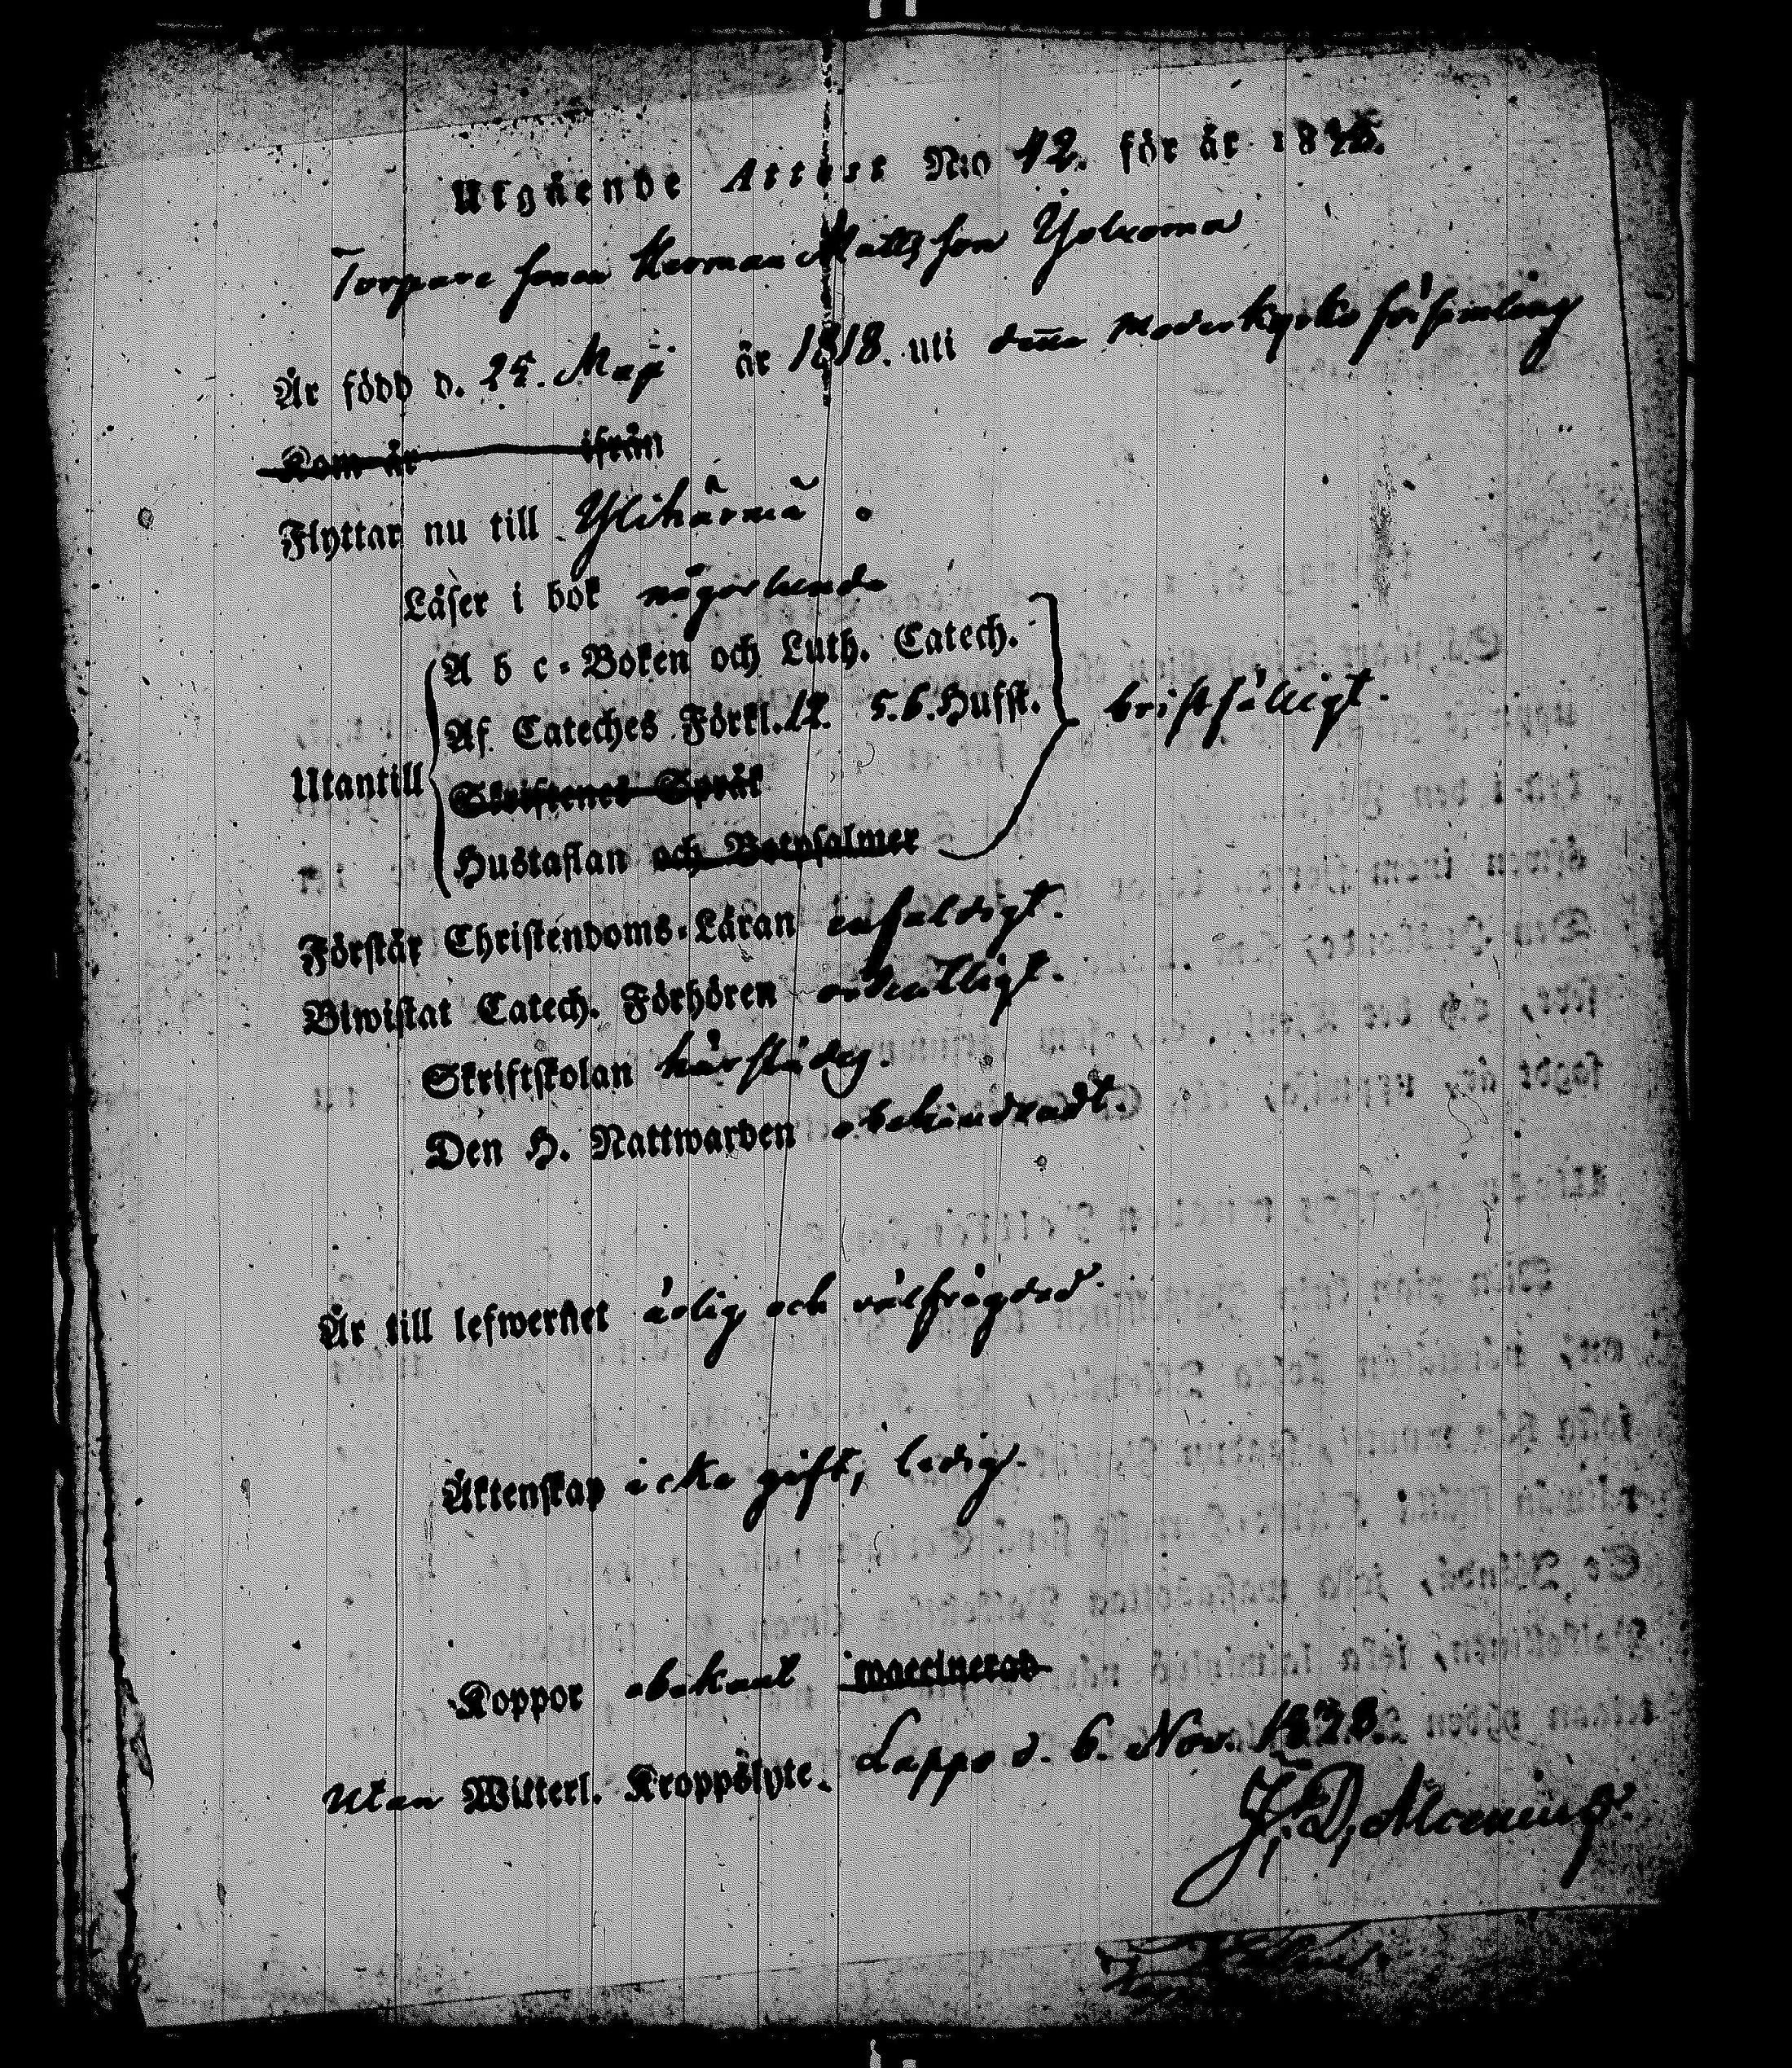 Utgående Attest N:o 42. för år 1838.
Torpare sonen Herman Mattsson Yolkoma
Är född d. 25. Maji år 1818. uti denna Moderkyrko församling
Kom år ifrån
Flyttar nu till Ylihärmä.
Läser i bok någorlunda
A b c-Boken och Luth. Catech.
Af Cateches Förkl. 12. 5. 6. Hufst. bristfälligt.
Utantill
Skriftenes Språk
Hustaflan och Botpsalmer
Förstår Christendoms-Läran enfaldigt.
Biwistat Catech. Förhören ordentligt.
Skriftskolan härstädes.
Den H. Nattwarden obehindradt.
Är till lefwernet ärlig och välfrägdad
Äktenskap icke gift, ledig.
Koppor obekant waccinerad
Utan Witterl. Kroppslyte. Lappo d. 6. Nov. 1838.
J. D. Alcenius.